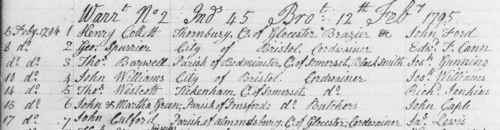 Warrt. No 2 Ind 45 Brot. 12th Feby 1795
5 Feby. 1794 1 Henry Collett Thornbury, C. of Glocester Brazier &c John Ford
8 do. 2 Geo. Spurrier City of Bristol Cordwainer Edwd. T. Cann
do do 3 Thos. Bagwell Parish of Bedminster, C. of Somerset, Black Smith Jos. Gunning
10 do. 4 John Williams City of Bristol Cordwainer Jos. Williams
14 do 5 Thos. Westcott Tickenham, C. of Somerset do Richd. Jenkins
15 do 6 John & Martha Green; Parish of Pensford; do Butchers John Cople
17 do, 7 John Culford Parish of Almondsbury; C. of Glocester; Cordwainer Jas. Lewis